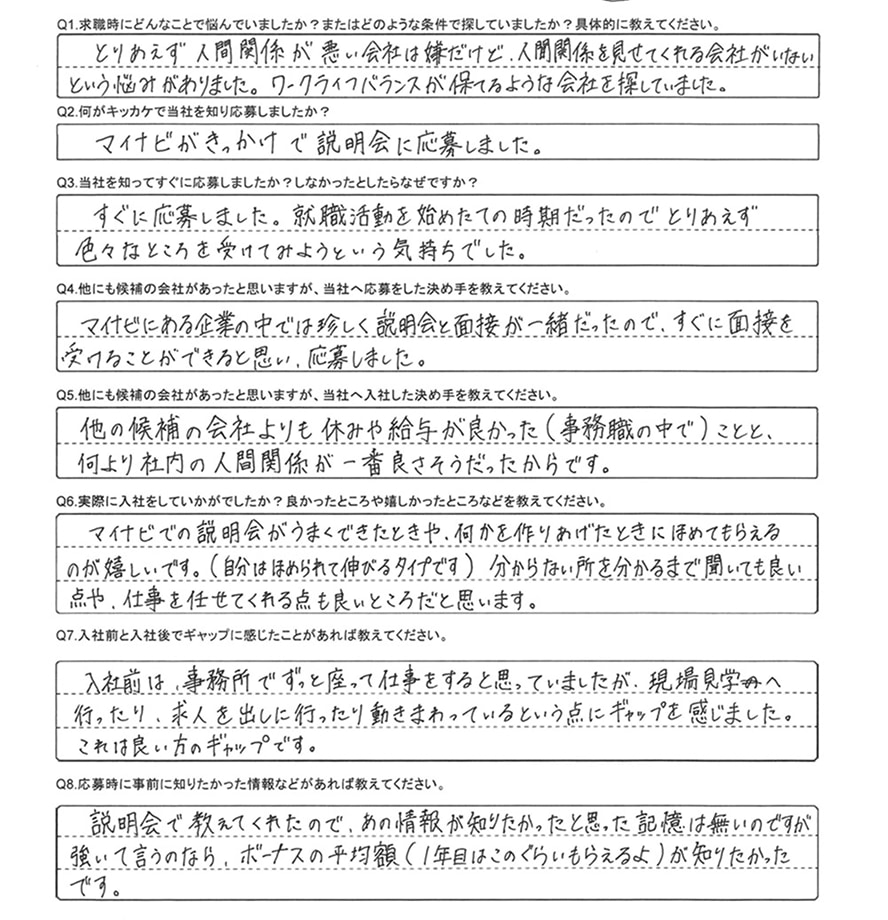 Q1.求職時にどんなことで悩んでいましたか？またはどのような条件で探していましたか？具体的に教えてください。
とりあえず人間関係が悪い会社は嫌だけど、人間関係を見せてくれる会社がいない
という悩みがありました。ワークライフバランスが保てるような会社を探していました。
Q2.何がキッカケで当社を知り応募しましたか？
マイナビがきっかけで説明会に応募しました。
Q3.当社を知ってすぐに応募しましたか？しなかったとしたらなぜですか？
すぐに応募しました。就職活動を始めたての時期だったのでとりあえず
色々なところを受けてみようという気持ちでした。
Q4.他にも候補の会社があったと思いますが、当社へ応募をした決め手を教えてください。
マイナビにある企業の中では珍しく説明会と面接が一緒だったので、すぐに面接を
受けることができると思い、応募しました。
Q5.他にも候補の会社があったと思いますが、当社へ入社した決め手を教えてください。
他の候補の会社よりも休みや給与が良かった(事務職の中で)ことと、
何より社内の人間関係が一番良さそうだったからです。
Q6.実際に入社をしていかがでしたか？良かったところや嬉しかったところなどを教えてください。
マイナビでの説明会がうまくできたときや、何かを作りあげたときにほめてもらえる
のが嬉しいです。(自分はほめられて伸びるタイプです) 分からない所を分かるまで聞いても良い
点や、仕事を任せてくれる点も良いところだと思います。
Q7.入社前と入社後でギャップに感じたことがあれば教えてください。
入社前は、事務所でずっと座って仕事をすると思っていましたが、現場見学へ
行ったり、求人を出しに行ったり動きまわっているという点にギャップを感じました。
これは良い方のギャップです。
Q8.応募時に事前に知りたかった情報などがあれば教えてください。
説明会で教えてくれたので、あの情報が知りたかったと思った記憶は無いのですが
強いて言うのなら、ボーナスの平均額(1年目はこのぐらいもらえるよ)が知りたかった
です。